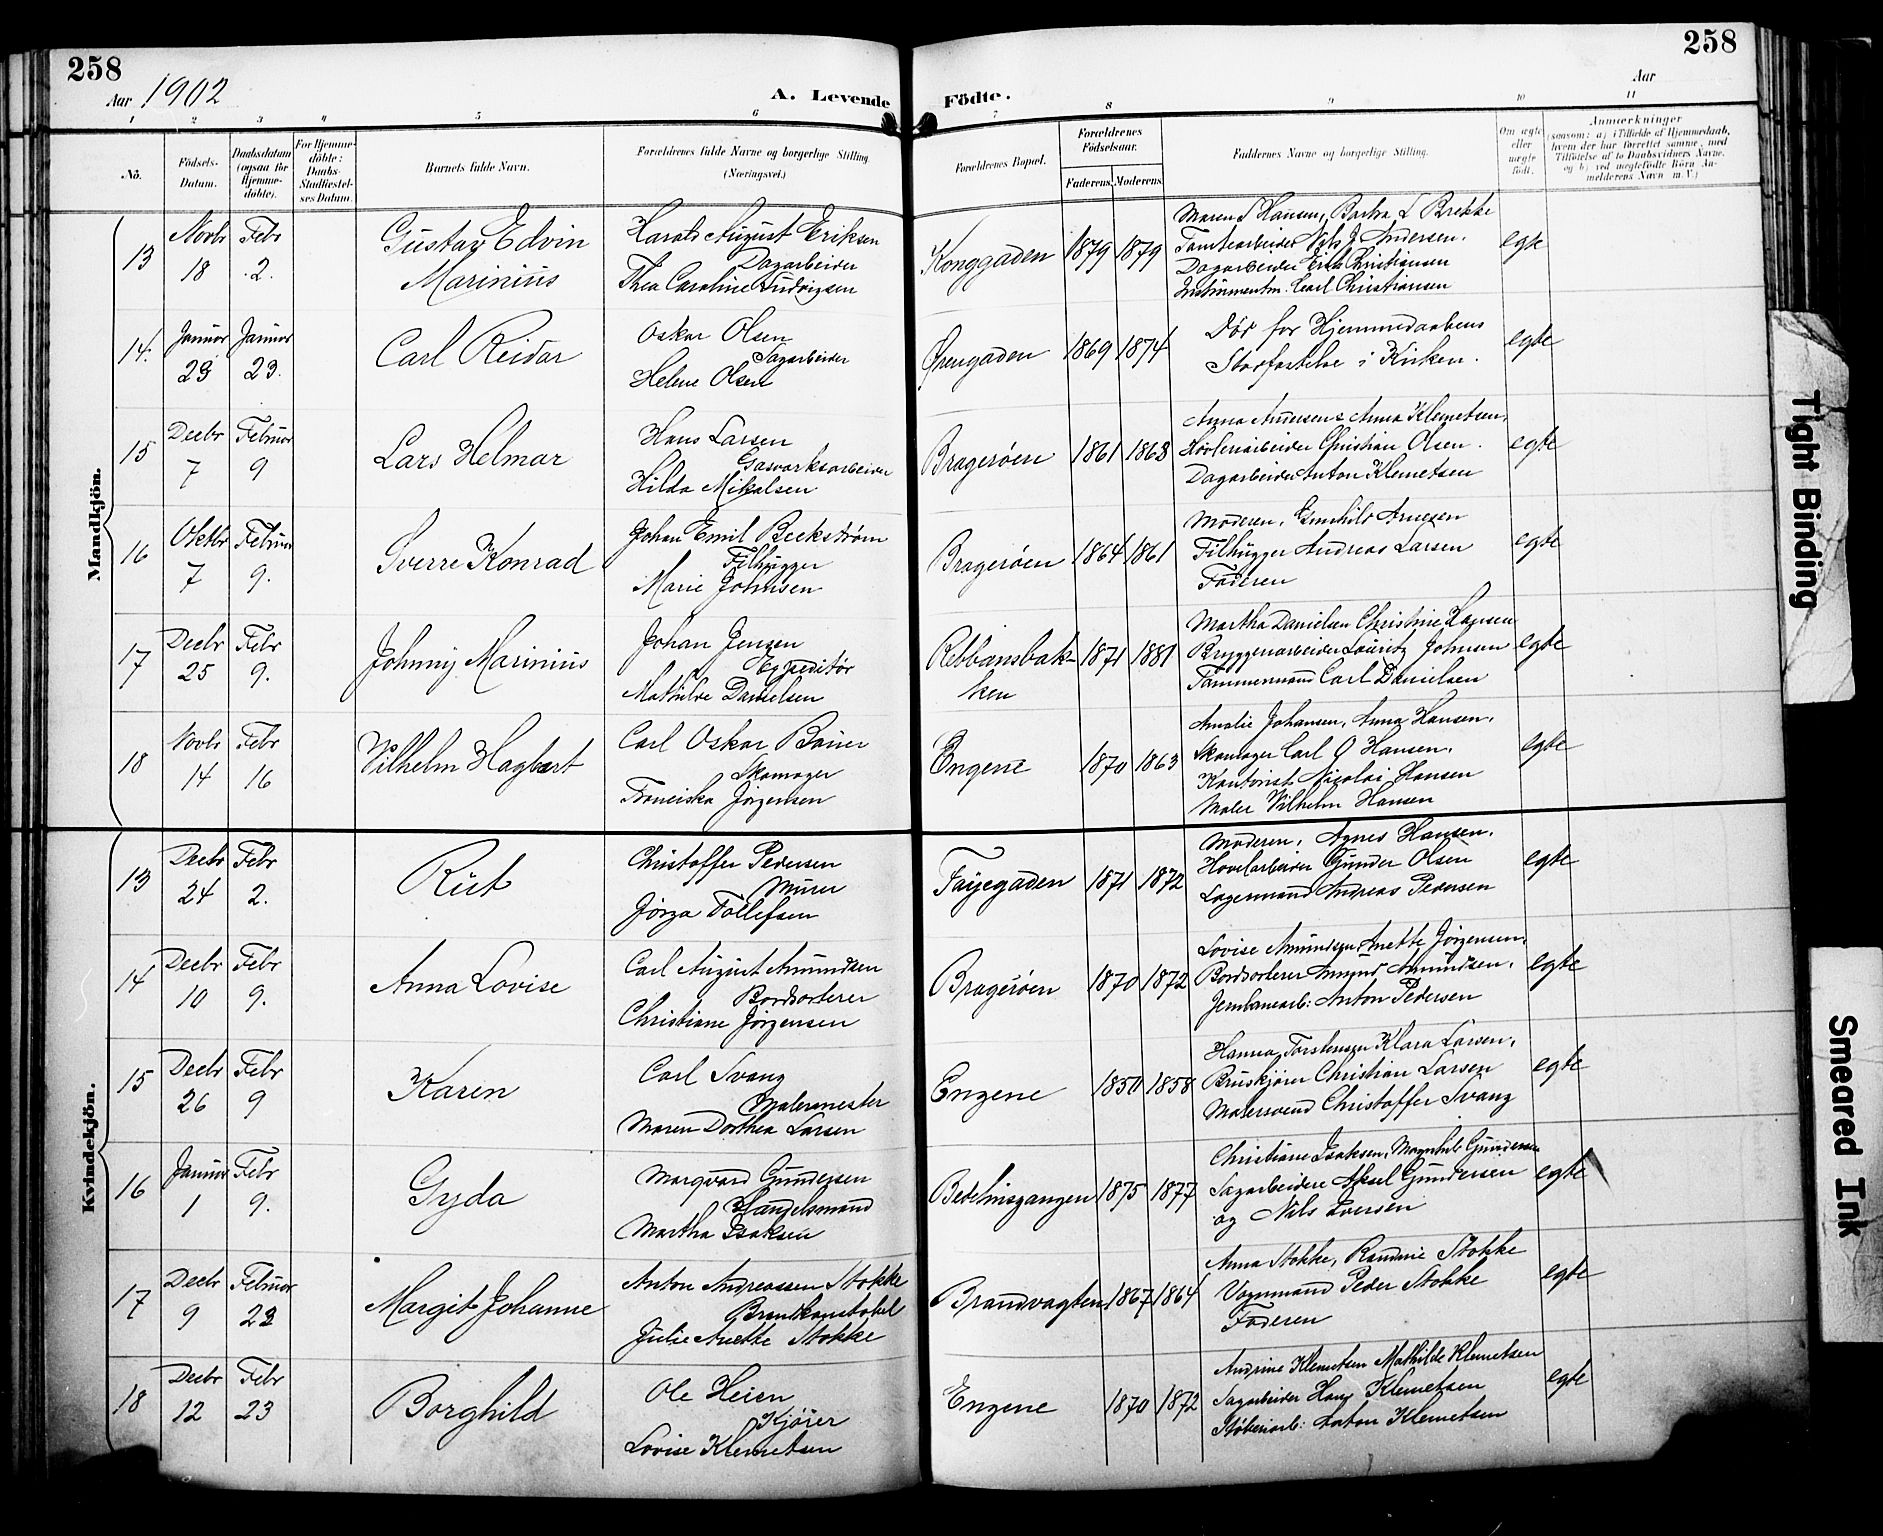 258
Aar 1902
A. Levende
Födte.
258
Aar
1 2 3 4 5 6 7 8 9 10 11
Nö.
Födsels-
Datum.
Daabsdatum
(ogsaa for
Hjemme-
döbte).
For Hjemme-
döbte:
Daabs-
Stadfæstel-
ses Datum.
Barnets fulde Navn.
Forældrenes fulde Navne og borgerlige Stilling
(Næringsvei.)
Forældrenes Bopæl.
Forældrenes
Födselsaar.
Faderens. Moderens.
Faddernes Navne og borgerlige Stilling.
Om ægte
eller
uægte
födt.
Anmærkninger
(saasom: a) i Tilfælde af Hjemmedaab,
hvem der har forrettet samme, med
Tilföielse af to Daabsvidners Navne,
og b) ved uægtefödte Börn An-
melderens Navn m. V.)
Mandkjön.
13
Novbr
18
Febr
2.
Gustav Edvin
Marinius
Harald August Eriksen
Dagarbeider
Thea Caroline Ludvigsen
Konggaden
1879 1879
Maren S Hansen, Barbra L Brekke
Tomtearbeider Nils J Andersen.
Dagarbeider Erik Christiansen
Instrumentm. Carl Christiansen
egte
14.
Januar
23
Januar
23.
Carl Reidar
Oskar Olsen
Sagarbeider
Helene Olsen
Ørengaden
1869 1874
Dør før Hjemmedaabens
Stadfæstelse i Kirken.
egte
15
Decbr
7
Februar
9
Lars Helmar
Hans Larsen
Gasværksarbeider
Hilda Mikalsen
Bragerøen
1861 1863
Anna Andersen & Anna Klemetsen,
Høvleriarbeider Christian Olsen.
Dagarbeider Anton Klemetsen
egte
16
Oktbr
7
Februar
9.
Sverre Konrad
Johan Emil Beckstrøm
Filhugger
Marie Johnsen
Bragerøen
1864 1861
Moderen, Gunhild Arnesen
Filhugger Andreas Larsen
Faderen
egte
17
Decbr
25
Febr
9.
Johnny Marinius
Johan Jensen
Expeditør
Mathilde Danielsen
Rebbansbak-
ken
1871 1881
Martha Danielsen Christine Hansen
Bryggeriarbeider Lauritz Johnsen
Tømmermand Carl Danielsen
egte
18
Novbr
14
Febr
16
Vilhelm Hagbart
Carl Oskar Baier
Skomager
Franciska Jørgensen
Engene
1870 1863
Amalie Johansen, Anna Hansen,
Skomager Carl O Hansen.
Kontorist Nicolai Hansen
Maler Vilhelm Hansen
egte
Kvindekjön.
13
Decbr
24
Febr
2.
Rut
Christoffer Pedersen
Murer
Jørga Tollefsen
Tøyegaden
1871 1872
Moderen, Agnes Hansen.
Hovelarbeider Gunder Olsen
Lagermand Andreas Pedersen
egte
14
Decbr
10
Febr
9.
Anna Lovise
Carl August Amundsen
Bordsorterer
Christiane Jørgensen
Bragerøen
1870 1872
Lovise Amundsen, Anette Jørgensen,
Bordsorterer Amund Amundsen,
Jernbanearb: Anton Pedersen
egte
15
Decbr
26
Febr
9
Karen
Carl Svang
Malermester
Maren Dorthea Larsen
Engene
1850 1858
Hanna Torstensen Klara Larsen,
Bruskjører Christian Larsen
Malersvend Christoffer Svang
egte
16
Januar
1
Febr
9.
Gyda
Marqvard Gundersen
Handelsmand
Martha Isaksen
Betelhisgangen
1875 1877
Christiane Isaksen, Magnhild Gundersen
Sagarbeidere Aksel Gundersen
og Nils Iversen
egte
17
Decbr
9
Februar
23
Margit Johanne
Anton Andreassen Stokke
Brankonstabel
Julie Anette Stokke
Brandvagten
1867 1864
Anna Stokke, Randine Stokke
Vognmand Peder Stokke
Faderen
egte
18
Decbr
12
Febr
23
Borghild
Ole Heien
Kjører
Lovise Klemetsen
Engene
1870 1872
Andrine Klemetsen Mathilde Klemetsen
Sagarbeider Hans Klemetsen
Støberiarb: Anton Klemetsen
egte
Tight Binding
Smeared Ink